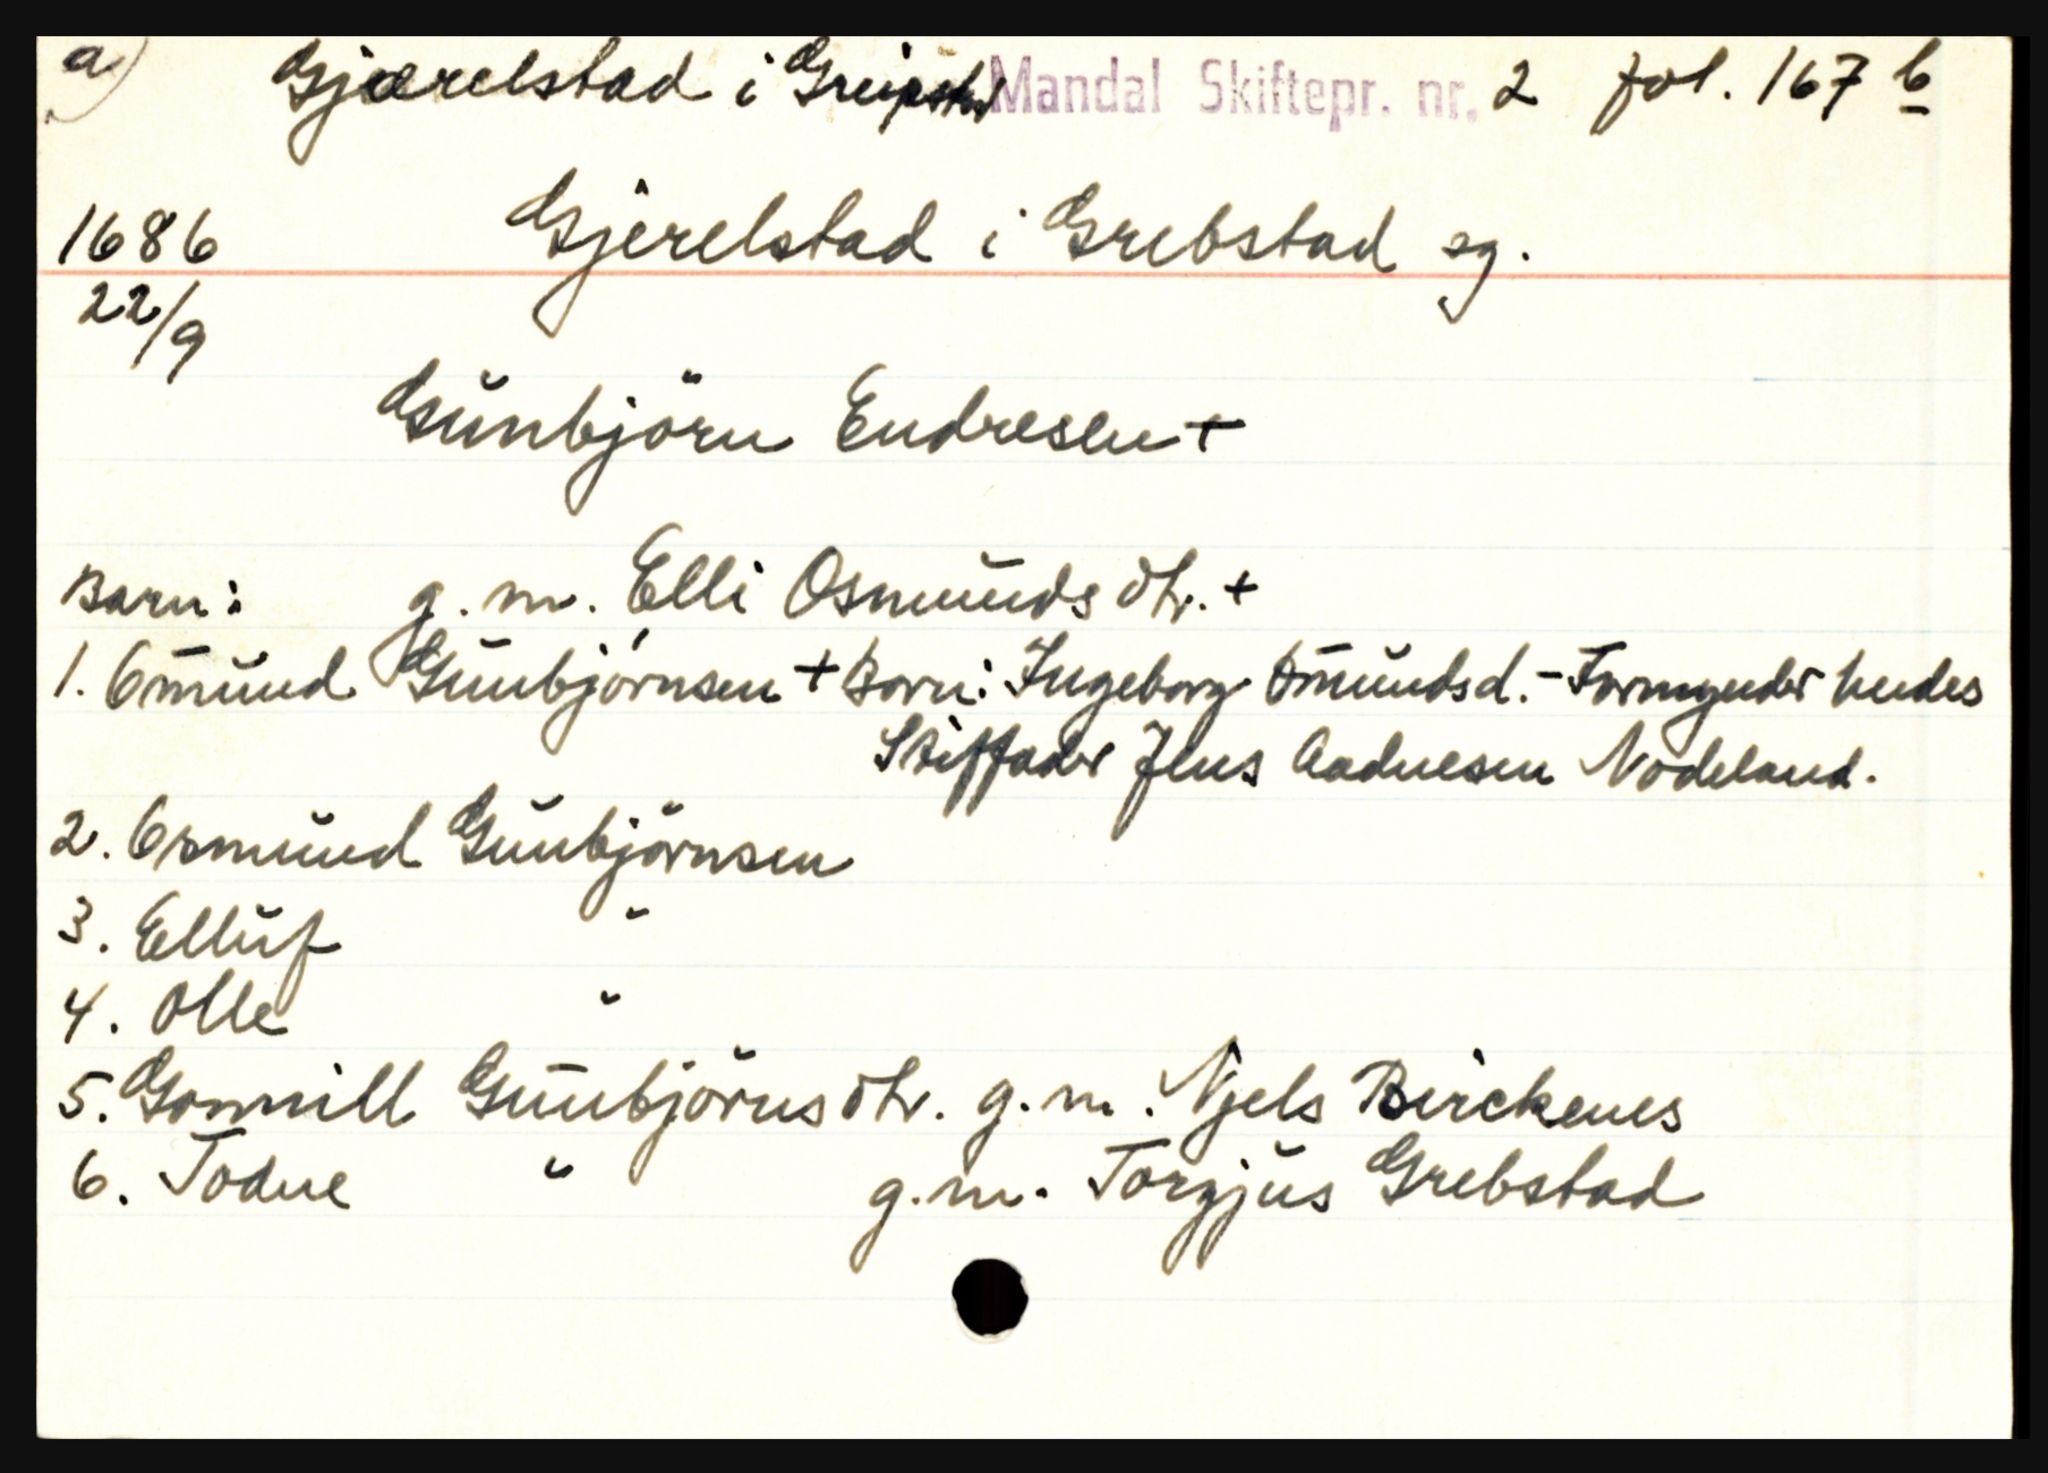 a) Gjærelstad i Greipstad Mandal Skiftepr. nr. 2 fol. 167 b
1686 Gjerelstad i Grebstad sg.
22/9
Gunbjörn Endresen +
Barn: g. m. Elli Osmunds dtr. +
1. Omund Gunbjörnsen + Barn: Ingeborg Omundsd. - Formynder hendes
Stiffader Jens Aadnesen Nodeland.
2. Osmund Gunbjörnsen
3. Elluf "
4. Olle "
5. Gonnill Gunbjörns dtr. g. m. Njels Birckenes
6. Todne " g. m. Torgjus Grebstad